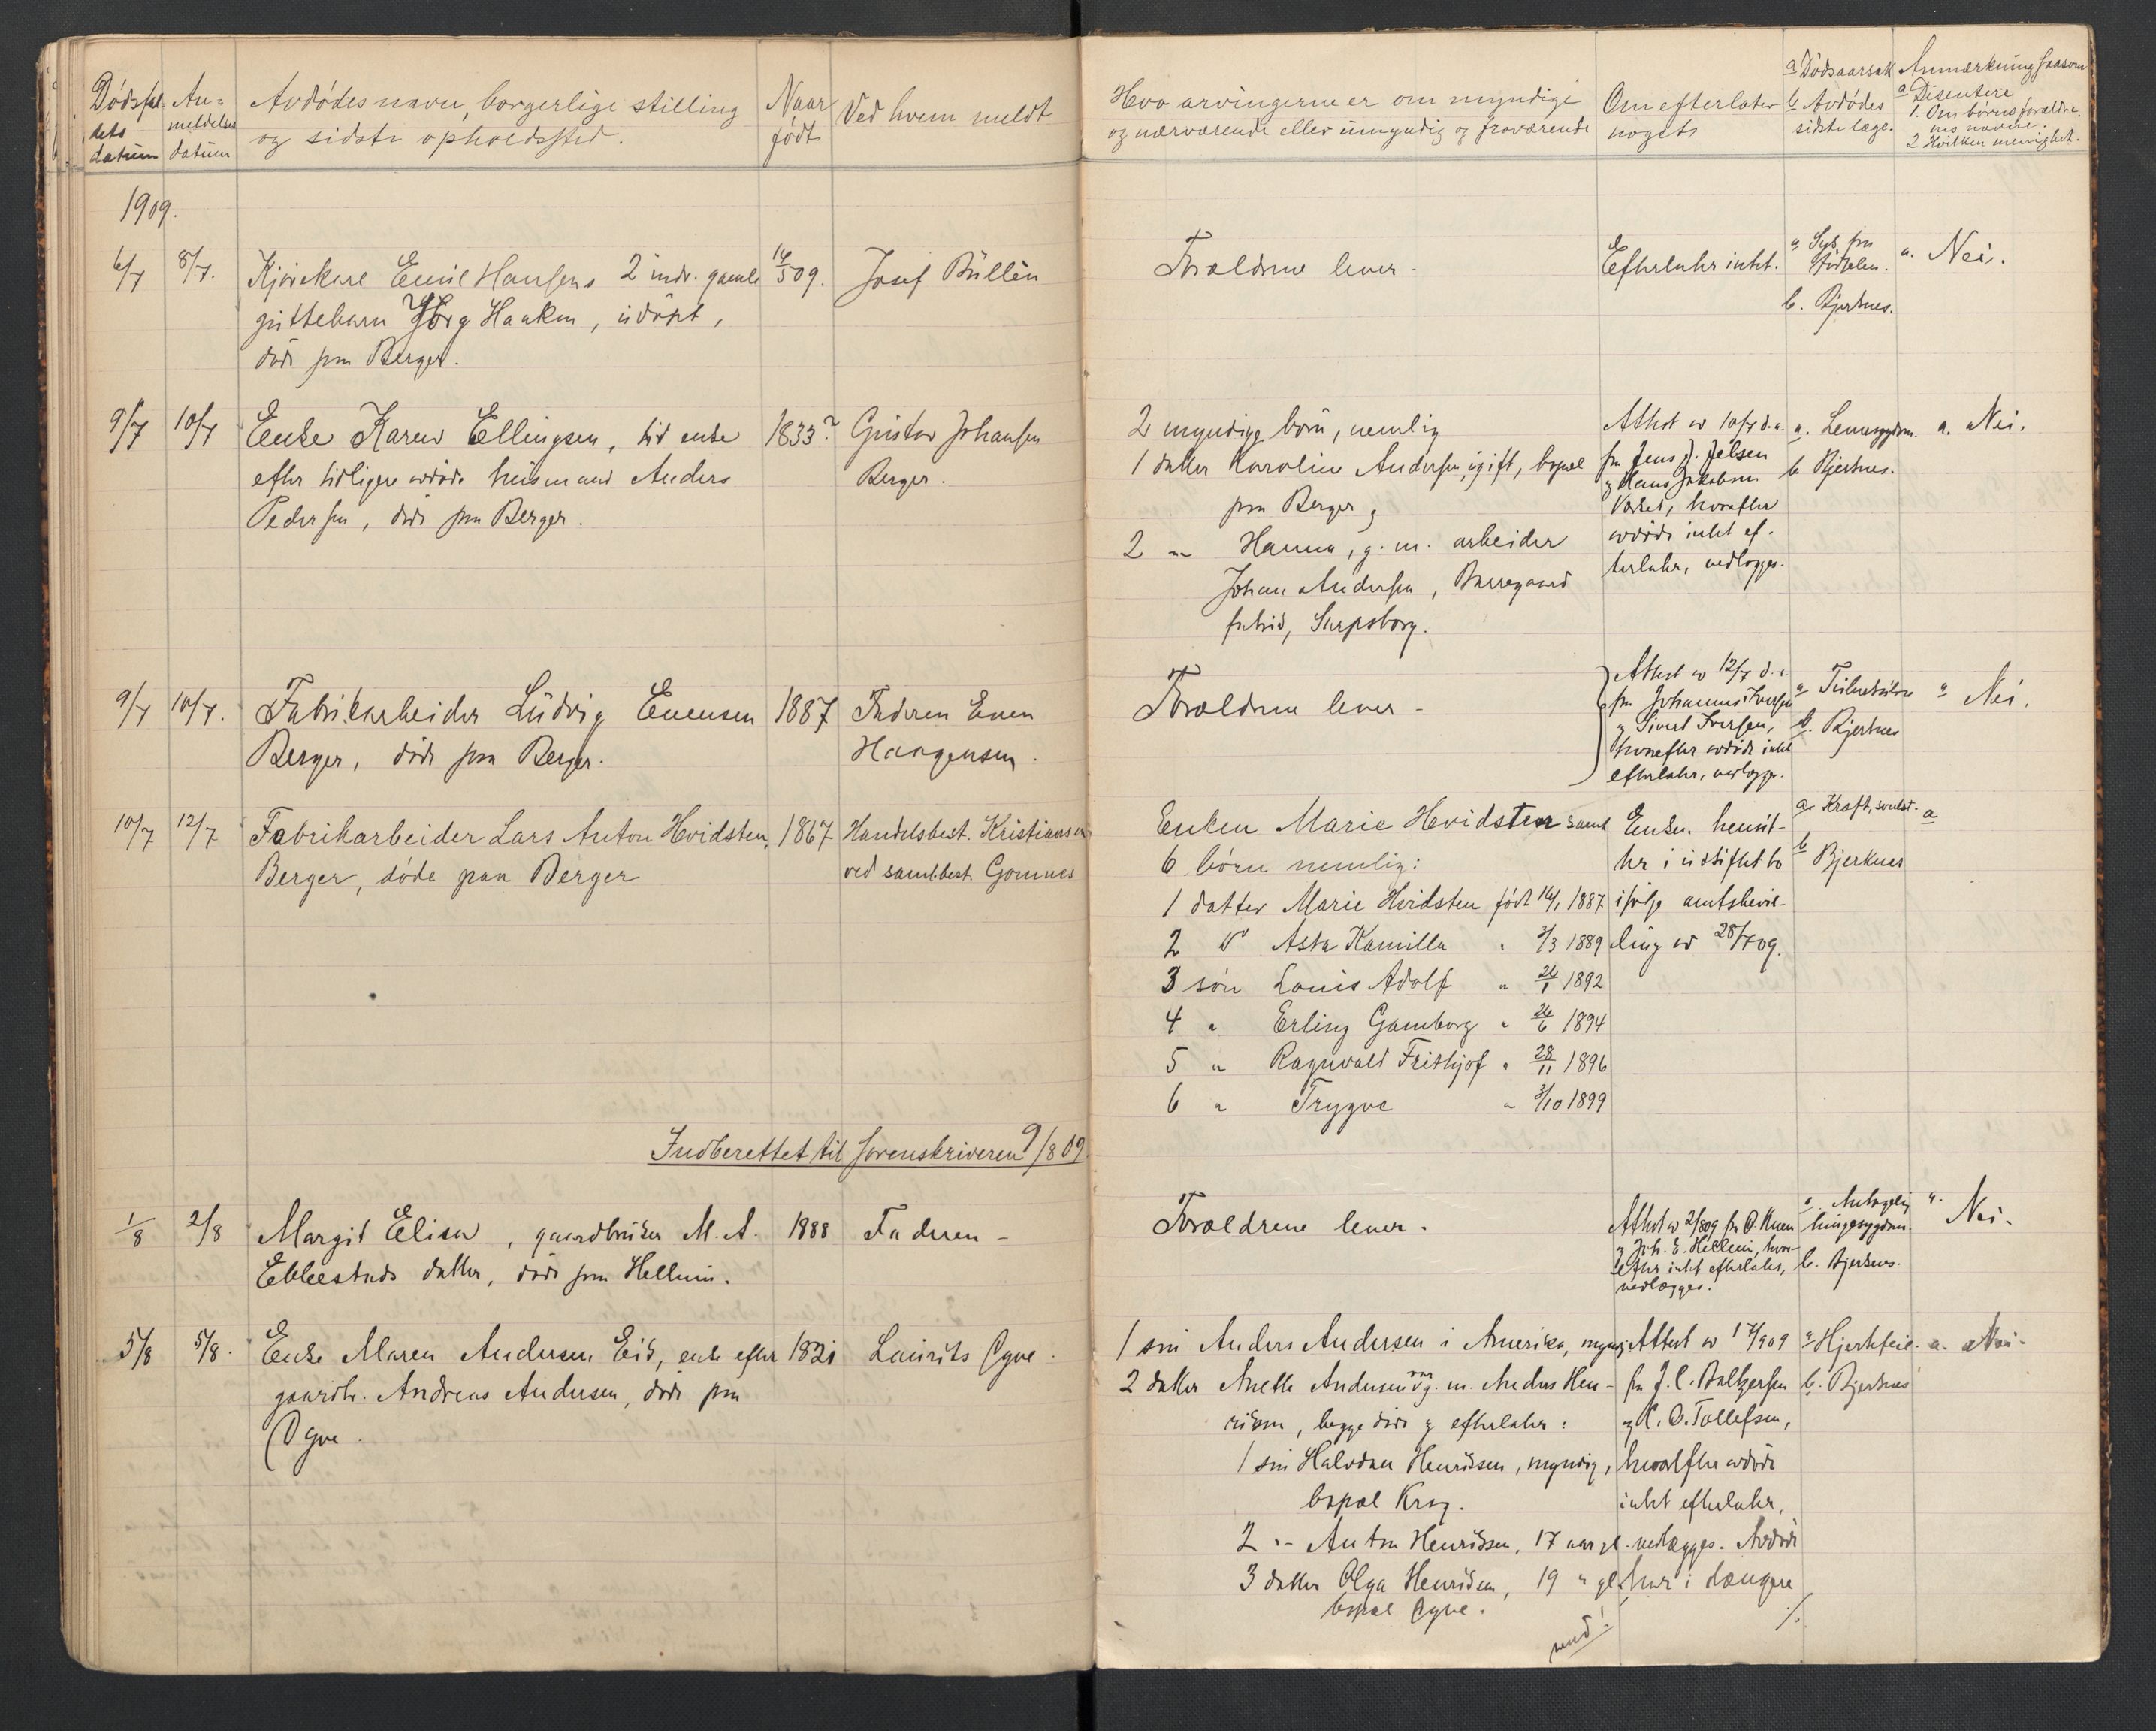 Dødsfal-
dets
datum
An-
meldelses
datum
Avdødes navn, borgerlige stilling
og sidste opholdssted.
Naar
født
Ved hvem meldt
Hvo arvingerne er om myndige
og nærværende eller umyndig og fraværende
Om efterlater
noget
a Dødsaarsak
b Avdødes
sidste læge.
Anmærkning saasom
a Disentere
1. Om børns foræld-
res navne.
2 Hvilken menighet.
1909.
6/7 8/7. Kjørekarl Emil Hansens 2 mdr. gamle 16/5 09. Josef Büllen
guttebarn Haakon, udøpt,
døde paa Berger.
Forældrene lever.
Efterlater intet.
a. Syk fra
fødselen.
b. Bjerknes.
a. Nei.
9/7 10/7 Enke Karen Ellingsen, enke 1833? Gustav Johansen
efter tidligere avdøde husmand Anders Berger.
Pedersen, døde paa Berger.
2 myndige børn, nemlig
1 datter Karoline Andersen, ugift, bopæl
paa Berger og
2 " Hanna, g. m. arbeider
Johan Andersen, Borregaard
fabrik, Sarpsborg.
Attest av 10/7 d.a.
fra Jens J. Jelsen
og Hans Jakobsen
hvorefter
avdøde intet ef-
terlater, vedlægges.
a. Lungesygdom.
b. Bjerknes.
a. Nei.
9/7 10/7. Fabrikarbeider Ludvig Evensen 1887 Faderen Even
Berger, døde paa Berger. Haagensen.
Forældrene lever.
Attest av 12/7 d.a.
fra Johannes Iversen
og Sivert Iversen,
hvorefter avdøde intet
efterlater, vedlægges.
a Tuberkulose
b. Bjerknes
a Nei.
10/7 12/7 Fabrikarbeider Lars Anton Hvidsten, 1867 Handelsbest. Kristiansen
Berger, døde paa Berger ved samlbest. Gomnes
Enken Marie Hvidsten samt
6 børn nemlig:
1 datter Marie Hvidsten født 16/1 1887
2 " Asta Kamilla " 3/3 1889
3 søn Louis Adolf " 24/1 1892
4 " Erling Gamborg " 26/6 1894
5 " Ragnvald Frithjof " 28/11 1896
6 " Trygve " 3/10 1899
Enken hensit-
ter i uskiftet bo
ifølge amtsbevil-
ling av 28/7 09.
a. Kræft,
b Bjerknes
a
Indberettet til sorenskriveren 9/8 09
1/8 2/8 Margit Elisa, gaardbruker M. A. 1888 Faderen
Ebbestads datter, døde paa Hellum.
Forældrene lever.
Attest av 2/8 09 fra O.
og Joh. E. Hellum, hvor-
efter intet efterlates,
vedlægges.
a. Antagelig
lungesygdom.
b. Bjerknes.
a. Nei.
5/8 5/8. Enke Maren Andersen Eid, enke efter 1821 Laurits Gyve.
gaardbr. Andreas Andersen, døde paa
Gyve.
1 søn Anders Andersen i Amerika, myndig
2 datter Anette Andersen var g. m. Anders Hen-
riksen, begge døde og efterlater:
1 søn Halvdan Henriksen, myndig,
bopæl Krog.
2 " Anton Henriksen, 17 aar gl.
3 datter Olga Henriksen, 19 " gl.
bopæl Gyve.
Attest av
fra J. C. Baltzersen
og K. O. Tollefsen,
hvorefter avdøde
intet efterlater,
vedlægges. Avdøde
har i længere
a Hjertefeil.
b. Bjerknes
a. Nei.
vend!